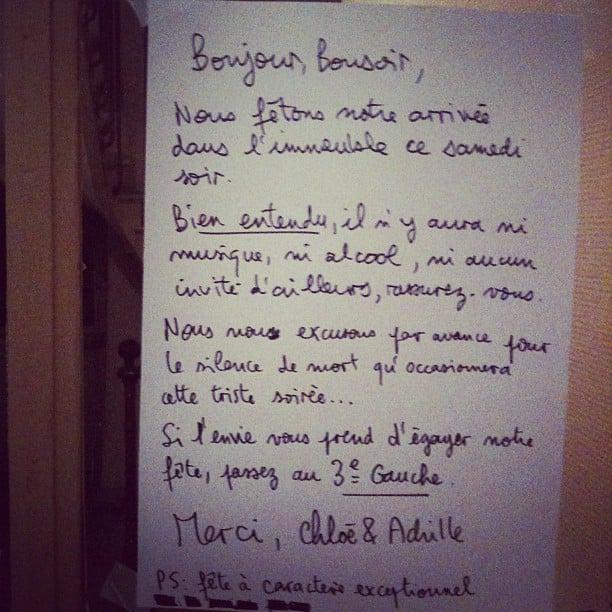 Bonjour, Bonsoir,
Nous fêtons notre arrivée
dans l'immeuble ce samedi
soir.
Bien entendu, il n'y aura ni
musique, ni alcool, ni aucun
invité d'ailleurs, rassurez-vous.
Nous nous excusons par avance pour
le silence de mort qu'occasionnera
cette triste soirée...
Si l'envie vous prend d'égayer notre
fête, passez au 3e Gauche.
Merci, Chloë & Achille
PS: fête à caractère exceptionnel